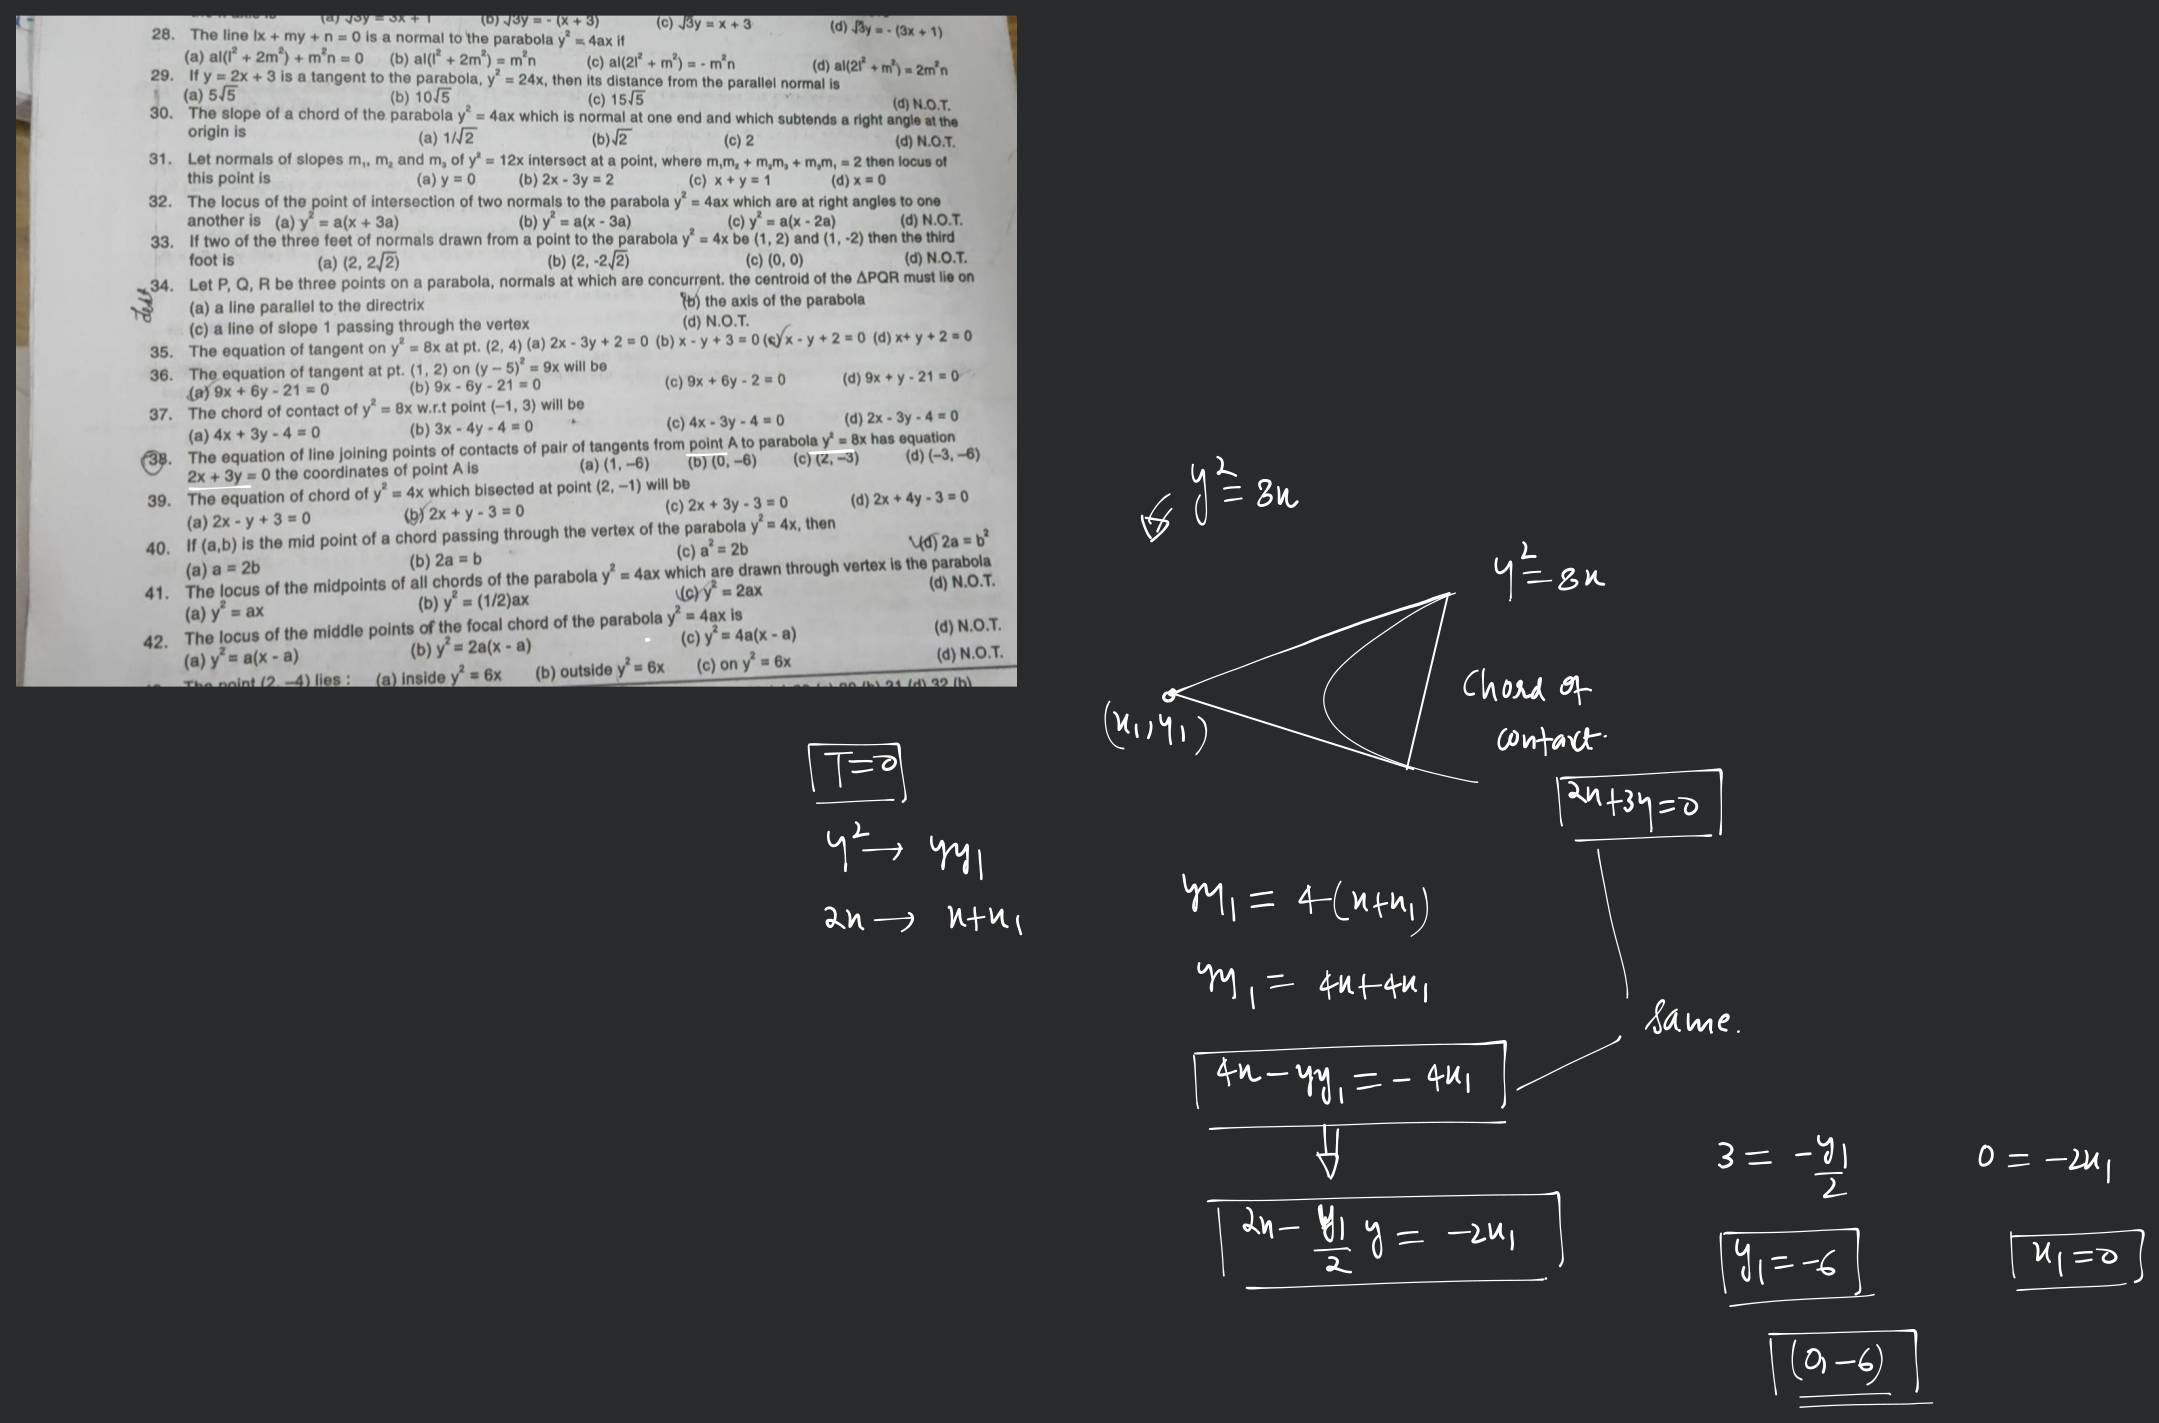 (a) √3y = 3x + 1 (b) √3y = - (x + 3) (c) √3y = x + 3 (d) √3y = - (3x + 1)
28. The line lx + my + n = 0 is a normal to the parabola y² = 4ax if
(a) al(l² + 2m²) + m²n = 0 (b) al(l² + 2m²) = m²n (c) al(2l² + m²) = - m²n (d) al(2l² + m²) = 2m²n
29. If y = 2x + 3 is a tangent to the parabola, y² = 24x, then its distance from the parallel normal is
(a) 5√5 (b) 10√5 (c) 15√5 (d) N.O.T.
30. The slope of a chord of the parabola y² = 4ax which is normal at one end and which subtends a right angle at the
origin is (a) 1/√2 (b) √2 (c) 2 (d) N.O.T.
31. Let normals of slopes m₁, m₂ and m₃ of y² = 12x intersect at a point, where m₁m₂ + m₂m₃ + m₃m₁ = 2 then locus of
this point is (a) y = 0 (b) 2x - 3y = 2 (c) x + y = 1 (d) x = 0
32. The locus of the point of intersection of two normals to the parabola y² = 4ax which are at right angles to one
another is (a) y² = a(x + 3a) (b) y² = a(x - 3a) (c) y² = a(x - 2a) (d) N.O.T.
33. If two of the three feet of normals drawn from a point to the parabola y² = 4x be (1, 2) and (1, -2) then the third
foot is (a) (2, 2√2) (b) (2, -2√2) (c) (0, 0) (d) N.O.T.
34. Let P, Q, R be three points on a parabola, normals at which are concurrent. the centroid of the ΔPQR must lie on
(a) a line parallel to the directrix (b) the axis of the parabola
(c) a line of slope 1 passing through the vertex (d) N.O.T.
35. The equation of tangent on y² = 8x at pt. (2, 4) (a) 2x - 3y + 2 = 0 (b) x - y + 3 = 0 (c) x - y + 2 = 0 (d) x+ y + 2 = 0
36. The equation of tangent at pt. (1, 2) on (y – 5)² = 9x will be
(a) 9x + 6y - 21 = 0 (b) 9x - 6y - 21 = 0 (c) 9x + 6y - 2 = 0 (d) 9x + y - 21 = 0
37. The chord of contact of y² = 8x w.r.t point (–1, 3) will be
(a) 4x + 3y - 4 = 0 (b) 3x - 4y - 4 = 0 (c) 4x - 3y - 4 = 0 (d) 2x - 3y - 4 = 0
38. The equation of line joining points of contacts of pair of tangents from point A to parabola y² = 8x has equation
2x + 3y = 0 the coordinates of point A is (a) (1, –6) (b) (0, –6) (c) (2, –3) (d) (–3, –6)
39. The equation of chord of y² = 4x which bisected at point (2, –1) will be
(a) 2x - y + 3 = 0 (b) 2x + y - 3 = 0 (c) 2x + 3y - 3 = 0 (d) 2x + 4y - 3 = 0
40. If (a,b) is the mid point of a chord passing through the vertex of the parabola y² = 4x, then
(a) a = 2b (b) 2a = b (c) a² = 2b (d) 2a = b²
41. The locus of the midpoints of all chords of the parabola y² = 4ax which are drawn through vertex is the parabola
(a) y² = ax (b) y² = (1/2)ax (c) y² = 2ax (d) N.O.T.
42. The locus of the middle points of the focal chord of the parabola y² = 4ax is
(a) y² = a(x - a) (b) y² = 2a(x - a) (c) y² = 4a(x - a) (d) N.O.T.
The point (2, –4) lies : (a) inside y² = 6x (b) outside y² = 6x (c) on y² = 6x (d) N.O.T.
y² = 8x
y² = 8x
(x₁, y₁)
Chord of
contact.
2x+3y=0
T=0
y² → yy₁
2x → x+x₁
yy₁ = 4(x+x₁)
yy₁ = 4x+4x₁
same.
4x – yy₁ = – 4x₁
2x – y₁/2 y = –2x₁
3 = –y₁/2
0 = –2x₁
y₁ = –6
x₁ = 0
(0, –6)